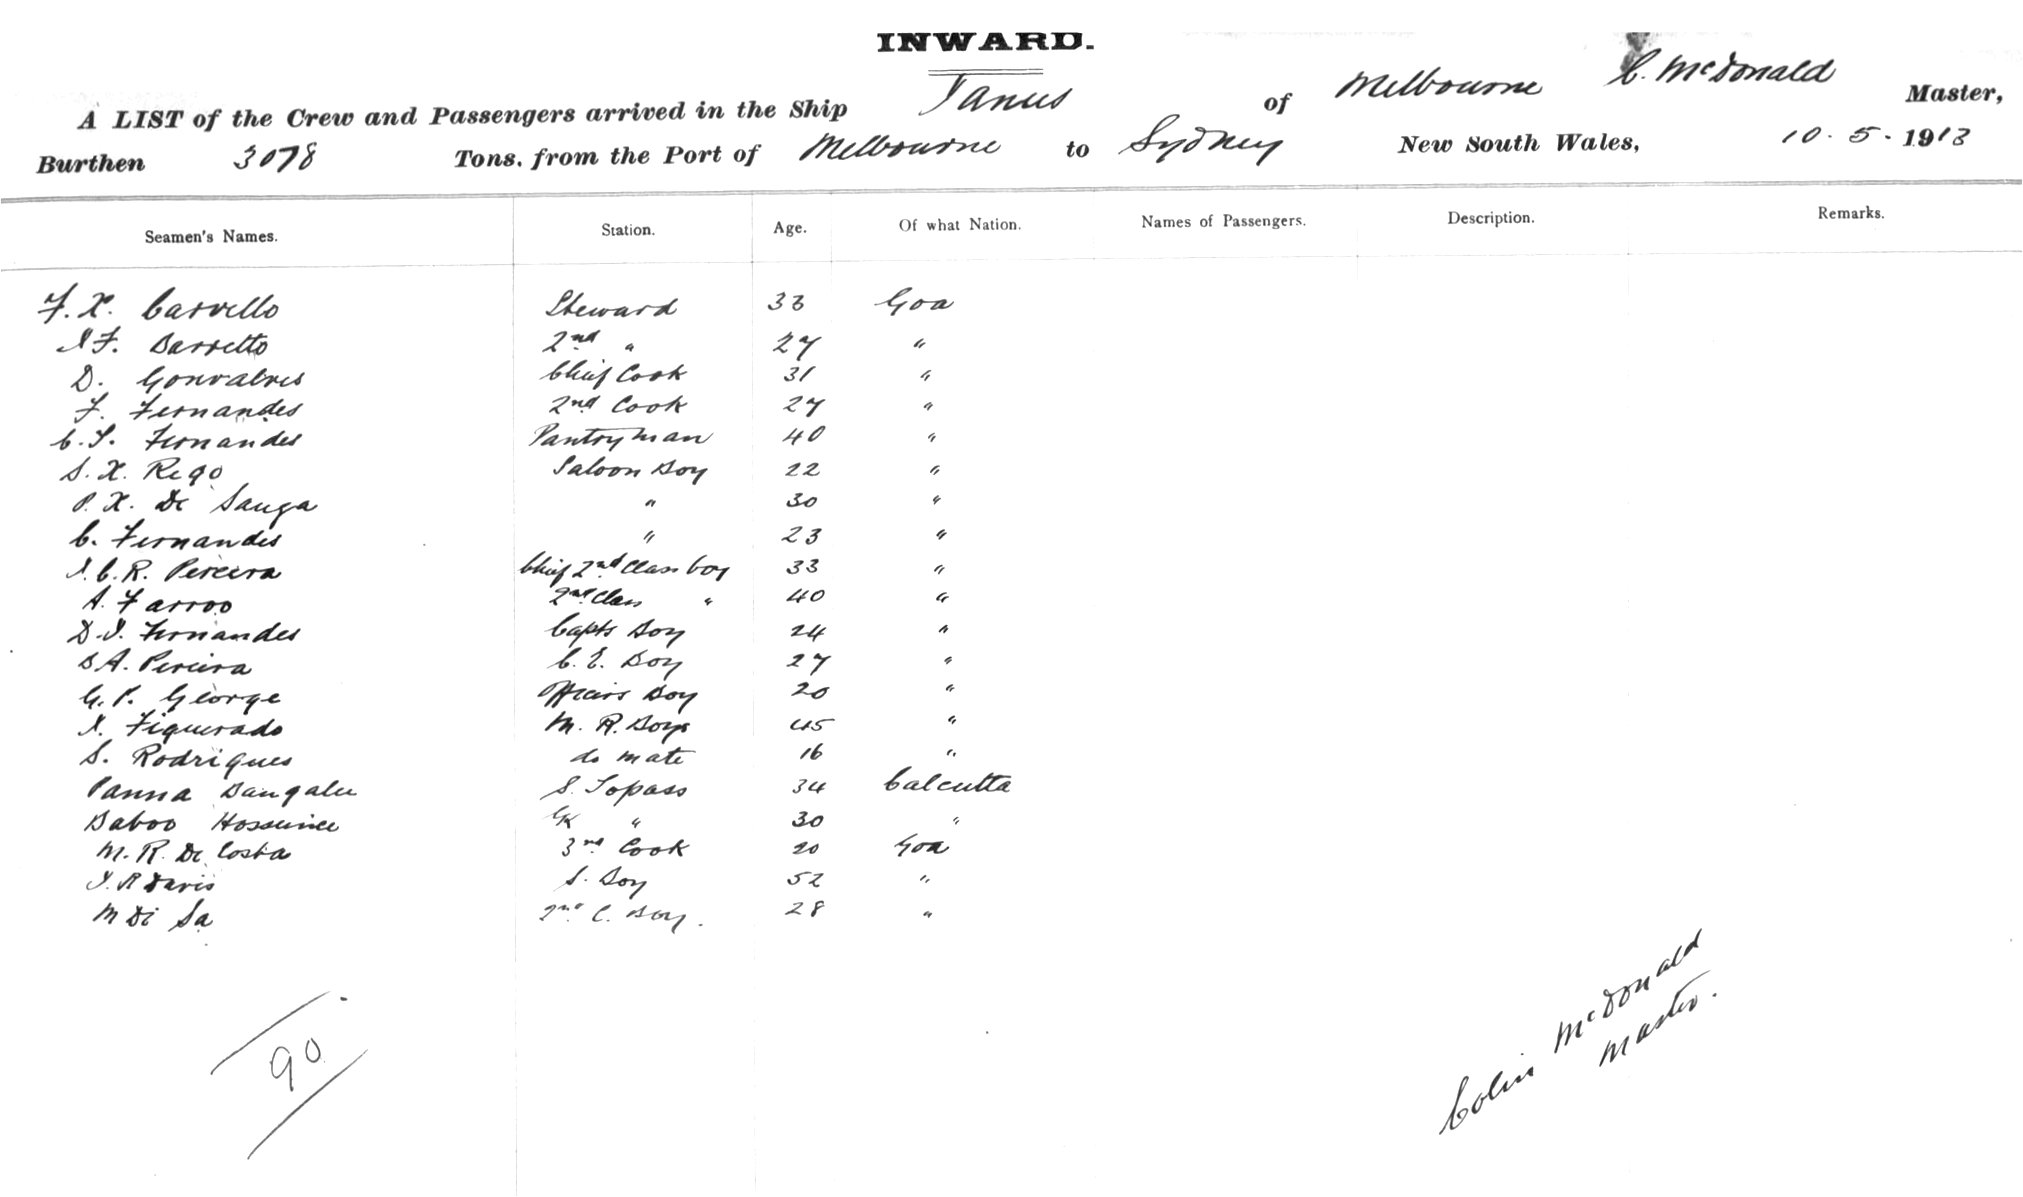 INWARD.
A LIST of the Crew and Passengers arrived in the Ship Janus of Melbourne C. McDonald Master,
Burthen 3078 Tons, from the Port of Melbourne to Sydney New South Wales, 10. 5. 1913
Seamen's Names. Station. Age. Of what Nation. Names of Passengers. Description. Remarks.
F. X. Carvello Steward 33 Goa
F. Barretto 2nd " 27 "
D. Gonsalves Chief Cook 31 "
F. Fernandes 2nd Cook 27 "
C. S. Fernandes Pantryman 40 "
S. X. Rego Saloon Boy 22 "
P. X. De Sauza " 30 "
C. Fernandes " 23 "
C. R. Pereira Chief 2nd Class boy 33 "
A. Farroo 2nd Class " 40 "
D. J. Fernandes Capts Boy 24 "
B A. Pereira C. E. Boy 27 "
G. P. George Officers Boy 20 "
X. Figuerado M. R. Boys 45 "
S. Rodrigues do mate 16 "
Panna Bangalee S. Topass 34 Calcutta
Baboo Hosseinee " 30 "
M. R. De Costa 3rd Cook 20 Goa
J. R Davis S. Boy 52 "
M Di Sa 2nd C. Boy. 28 "
90
Colin McDonald
Master.